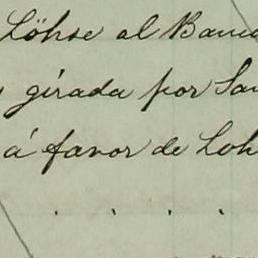 Löhse al Banco
girada por San
á favor de Loh
. . . .